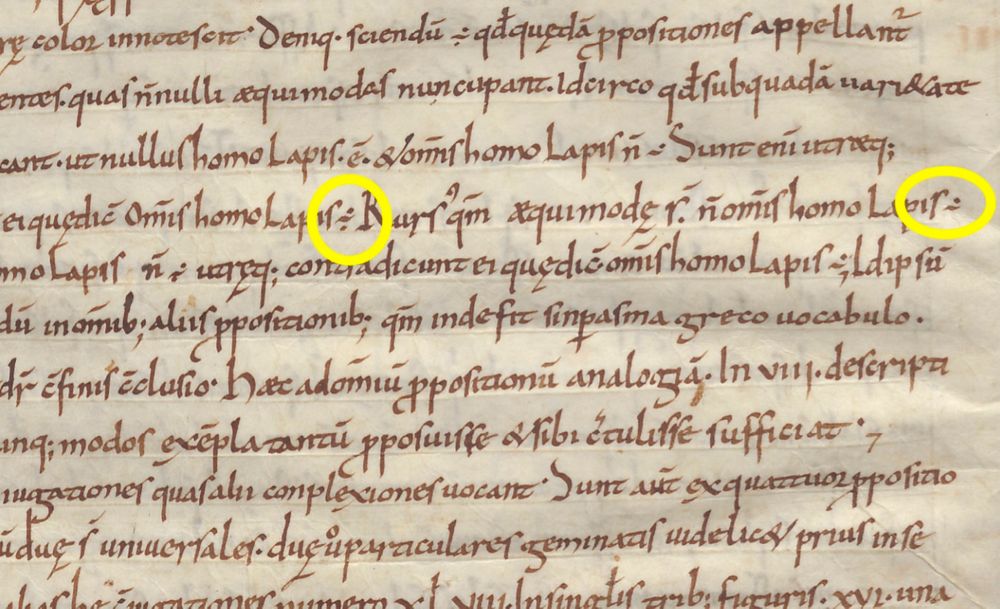 rę color innotescit· Deniq· sciendū ÷ qđ quędā ꝓpositiones appellant᷑
entes· quas ñnulli æquimodas nuncupant· Idcirco qđ sub quadā uari&ate
cant· ut nullus homo lapis· ē· & om̄is homo lapis ñ ÷ Sunt eni̅ utræq;
ei quę dic̄ Om̄is homo lapis ÷ Rursꝰ qm̄ æquimodę s̄· ñ om̄is homo lapis ÷
mo lapis ñ ÷ utręq; contradicunt ei quę dic̄· om̄is homo lapis ÷; Id ipsū
dū in om̄ib; aliis ꝓpositionib; qm̄ inde fit sinꝑasma greco uocabulo·
dr̄ c̄finis c̄clusio· Hæc ad om̄iū ꝓpositionū analogiā· In VIII· descripti
unq; modos exēpla tantū ꝓposuisse & sibi c̄tulisse sufficiat·,
iugationes quas alii conplexiones uocant· Sunt aut̄ ex quattuor ꝓpositio
duę s̄ uniuersales· duę ů particulares geminatis uidelic& prius in se
numero XL VIII· In singłis trib; figuris· XVI· una